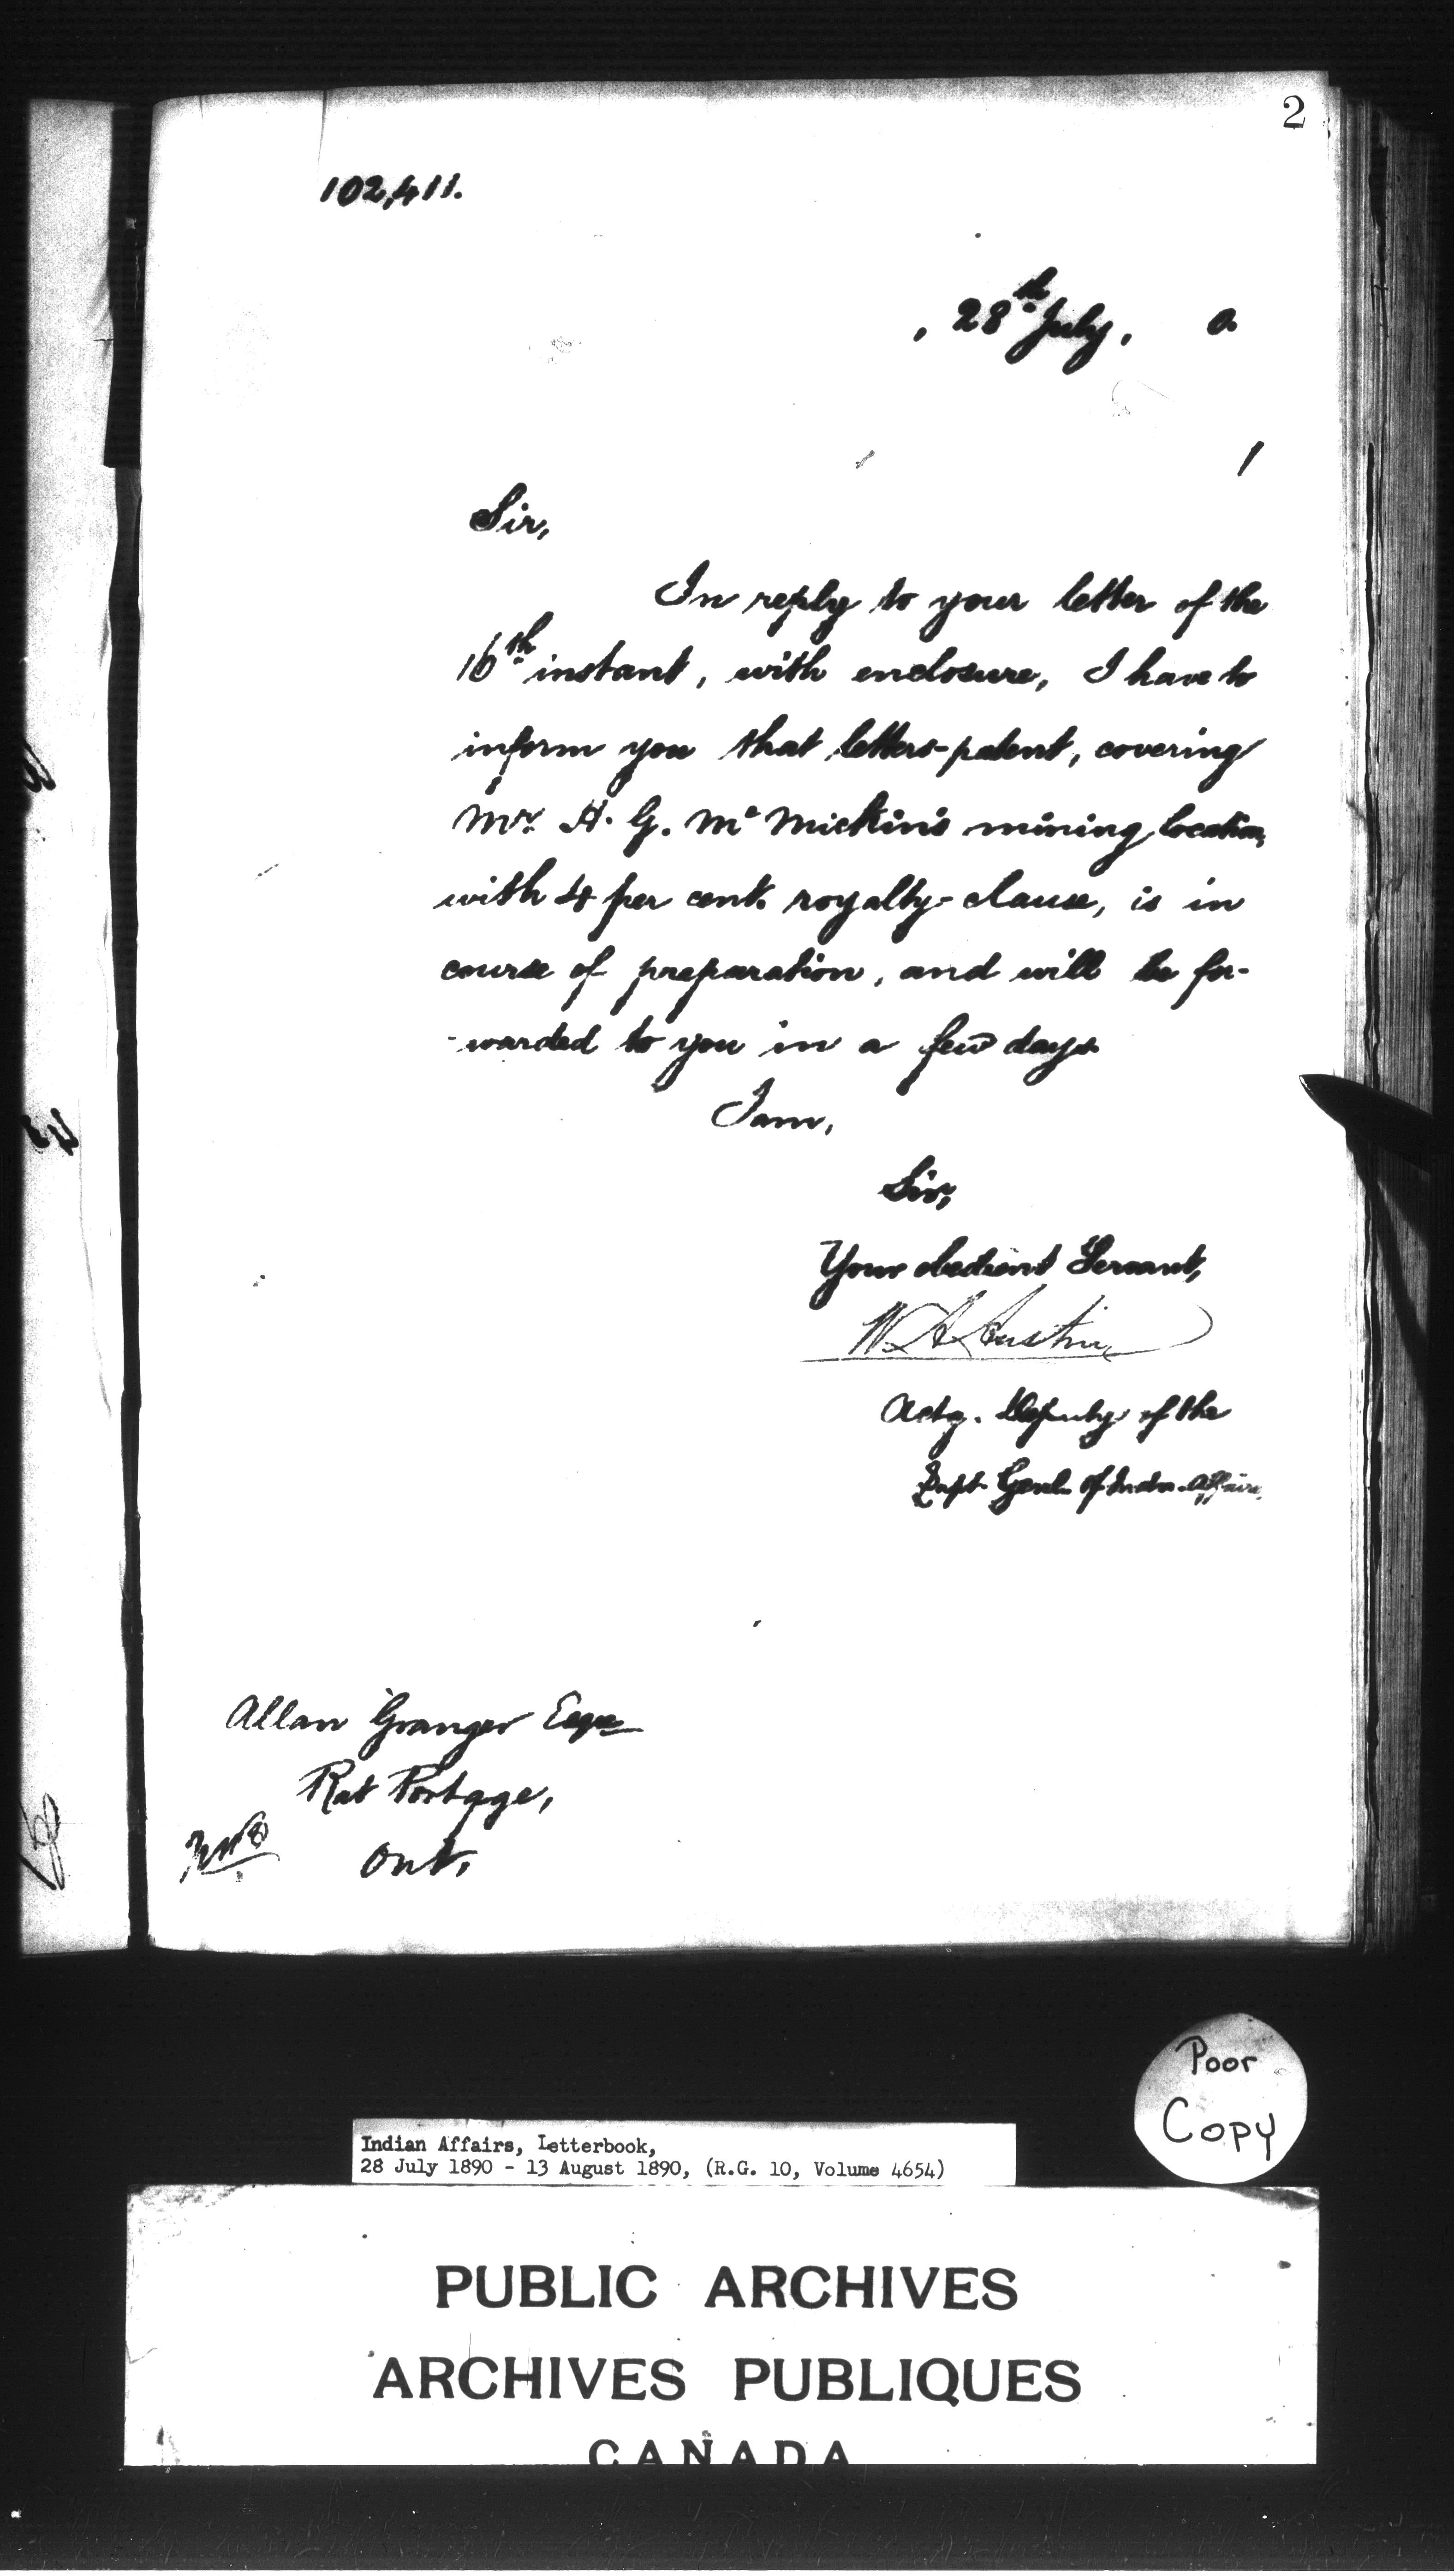 2
102,411.
, 28th July, 0
Sir,
In reply to your letter of the
16th instant, with enclosure, I have to
inform you that letters-patent, covering
Mr. H. G. Mc Mickin's mining location,
with 4 per cent. royalty-clause, is in
course of preparation, and will be for-
-warded to you in a few days
I am,
Sir,
Your obedient Servant,
W. A. Austin
Actg. Deputy of the
Supt Genl. of Indn. Affairs.
Allan Granger Esqre
Rat Portage,
Ont.
Poor
Copy
Indian Affairs, Letterbook,
28 July 1890 - 13 August 1890, (R.G. 10, Volume 4654)
PUBLIC ARCHIVES
ARCHIVES PUBLIQUES
CANADA